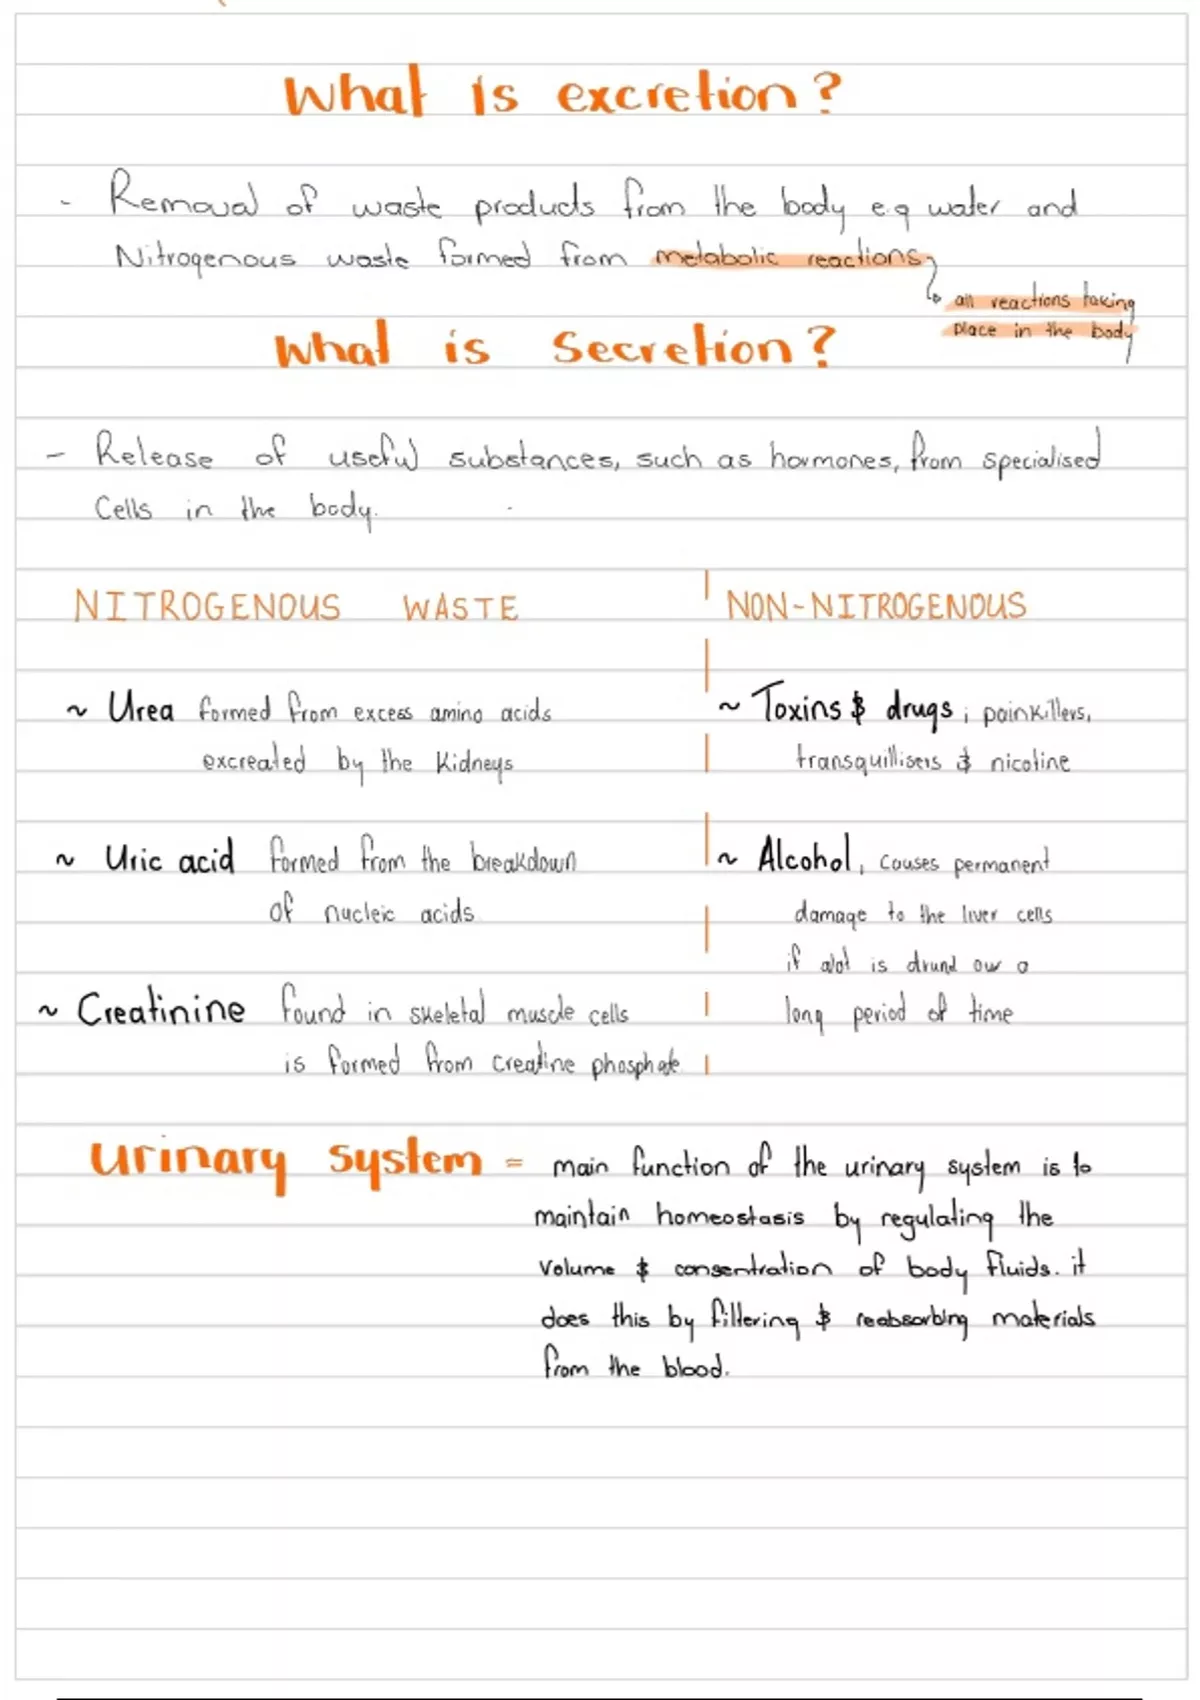 What is excretion?
- Removal of waste products from the body e.g water and
Nitrogenous waste formed from metabolic reactions
all reactions taking
place in the body
What is Secretion?
- Release of useful substances, such as hormones, from specialised
Cells in the body.
NITROGENOUS WASTE
~ Urea formed from excess amino acids
excreated by the Kidneys
~ Uric acid formed from the breakdown
of nucleic acids.
~ Creatinine found in skeletal muscle cells
is formed from creatine phosphate.
NON-NITROGENOUS
~ Toxins & drugs ; painkillers,
transquillisers & nicotine
~ Alcohol, causes permanent
damage to the liver cells
if alot is drund over a
long period of time
Urinary system = main function of the urinary system is to
maintain homeostasis by regulating the
volume & consentration of body fluids. it
does this by filtering & reabsorbing materials
from the blood.